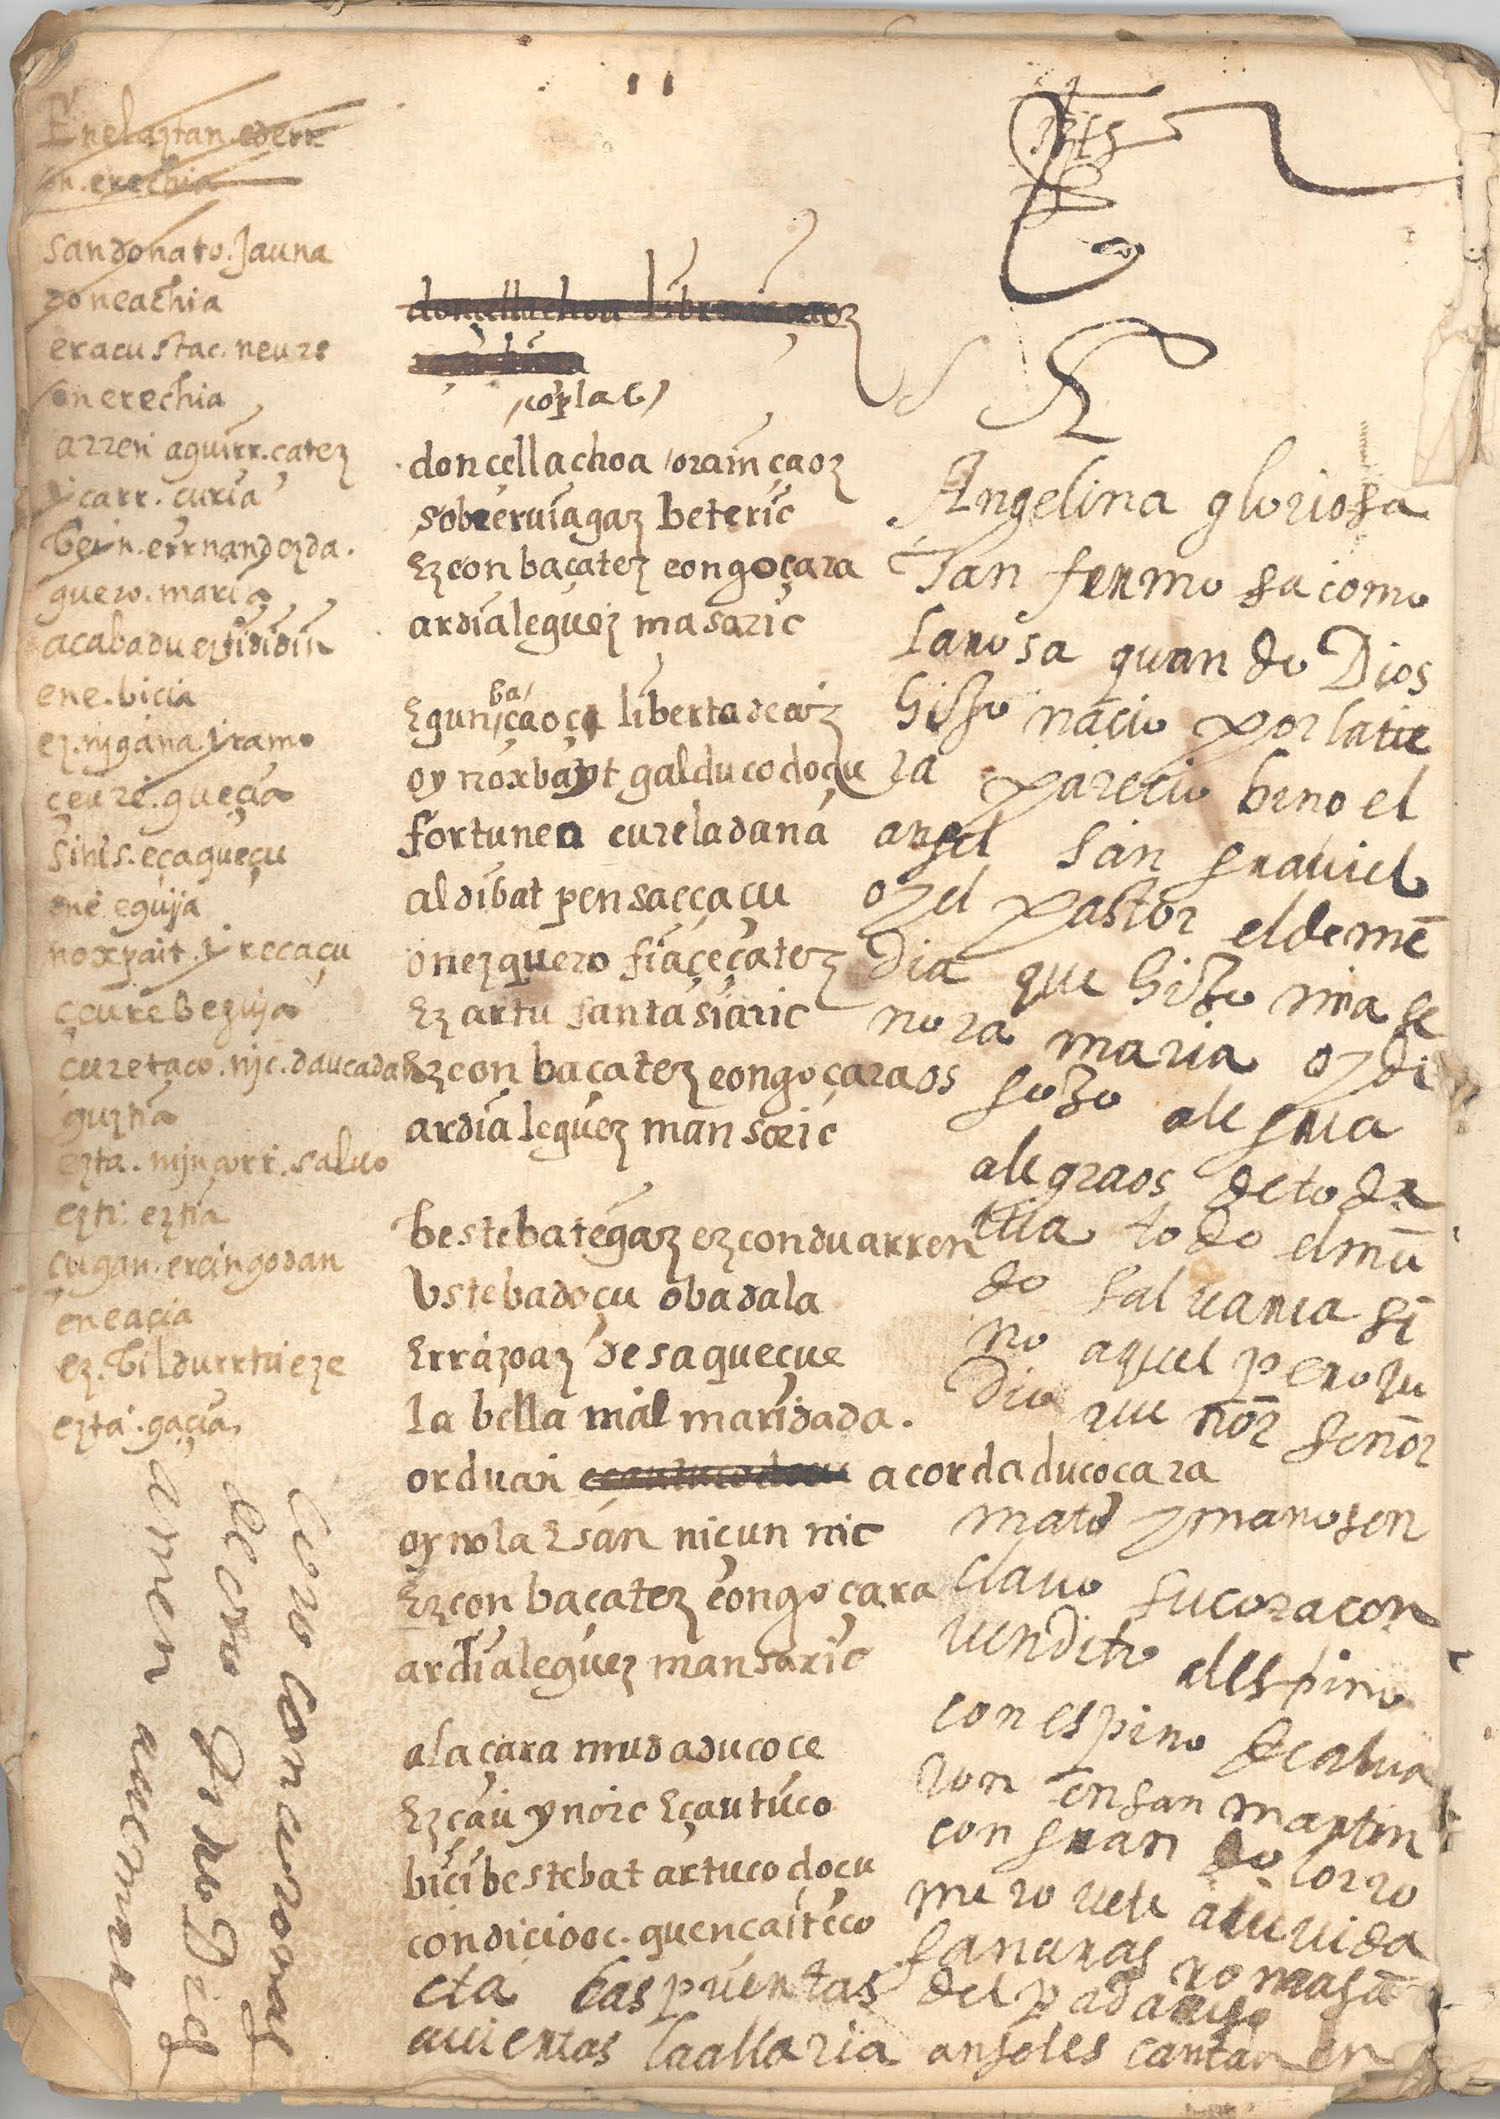 11
Enelaztan.ederr
on.erechia
sandonato.Jauna
doneathia
eracustac.neure
onerechia
arren aguirr.çatez
ycarr.curia
bein.errnandezda.
guero.maria
acabadu eztididin
ene.bicia
ez.njgana.yramo
çeure.gueçia
sinis.eçagueçu
ene eguija
noxpait.yrecaçu
çeure beguija
çuretaco.njc.daucadan
guztia
ezta.nijnorr.saluo
ezti.eztia
çugan.ereingodan
eneaçia
ez.bildurrtuieze
ezta.gaçia.
doncellachoa
coplac
doncellachoa orain çaoz
soberuiagaz beteric
Ezcon baçatez eongoçara
ardialeguez masaric
Egun ba çaoça libertadeaz
oy noxbayt galducodoçu
fortunea cureladana
aldibat pensaeçaçu
onezquero fiaçeçatez
Ez artu fantasiaric
Ezcon baçatez eongoçara
ardialeguez mansoric
bestebategaz ezconduarren
Ustebadoçu obadala
Errazoaz desagueçue
la bella mal maridada.
orduan acordaducoçara
oynola Esan niçun nic
Ezcon baçatez eongo çara
ardialeguez mansaric
alaçara mudaducoçe
Ezcau ynoic Eçautuco
bici bestebat artuco doçu
condicioec.guençaiteco
Angelina gloriosa
Tan fermosa como
larosa quando Dios
hisso naçio porlatie
ra parecio bino el
angel san graviel
oyel pastor eldeme
dia que hizo mia se
nora maria oydi
os gozo alegria
alegraos detoda
uia todo elmu
do saluaria si
no aquel perroju
dio que nor senor
mato ymanosen
clauo sucoraçon
uendito elespino
con espino decalua
ron Ensan martin
con gran dolorro
mero uele aluuida
sanuras romasa
cta las puertas del padaruso
auiertas laallaria angeles cantan en
coro con coronas
de oro Dios
amen amen